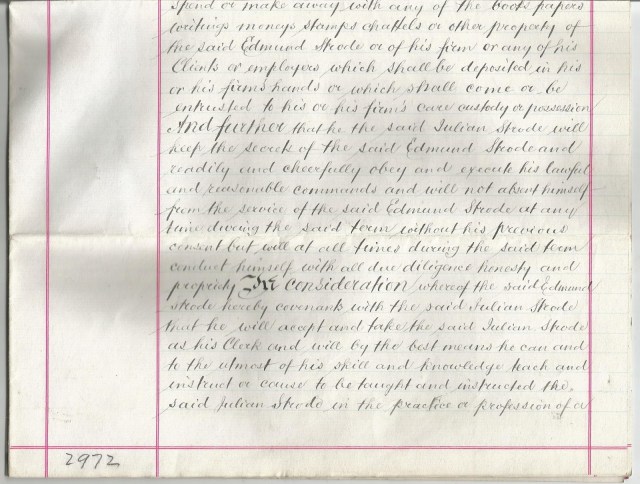 spend or make away with any of the books papers
writings moneys stamps chattels or other property of
the said Edmund Strode or of his firm or any of his
Clients or employers which shall be deposited in his
or his firm's hands or which shall come or be
entrusted to his or his firm's care custody or possession
And further that he the said Julian Strode will
keep the secrets of the said Edmund Strode and
readily and cheerfully obey and execute his lawful
and reasonable commands and will not absent himself
from the service of the said Edmund Strode at any
time during the said term without his previous
consent but will at all times during the said term
conduct himself with all due diligence honesty and
propriety In consideration whereof the said Edmund
Strode hereby covenants with the said Julian Strode
that he will accept and take the said Julian Strode
as his Clerk and will by the best means he can and
to the utmost of his skill and knowledge teach and
instruct or cause to be taught and instructed the
said Julian Strode in the practice or profession of a
2972